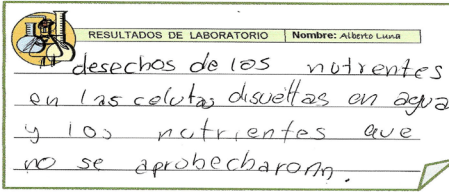 RESULTADOS DE LABORATORIO Nombre: Alberto Luna
desechos de los nutrentes
en las celulas disueltas en agua
y los nutrientes que
no se aprobecharonn.